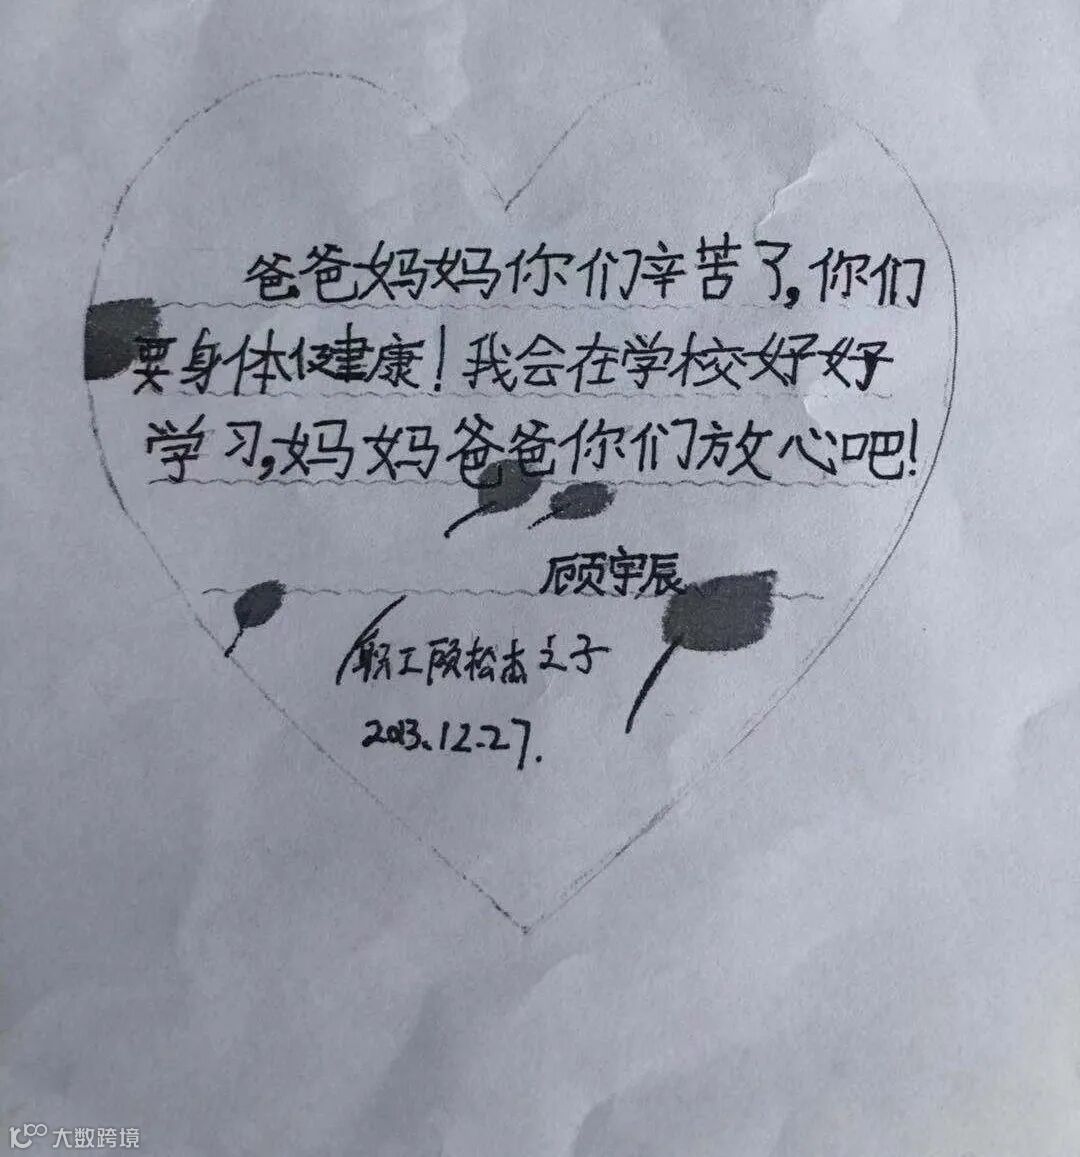 爸爸妈妈你们辛苦了,你们
要身体健康!我会在学校好好
学习,妈妈爸爸你们放心吧!
顾宇辰
职工顾松杰之子
2013.12.27.
大数跨境